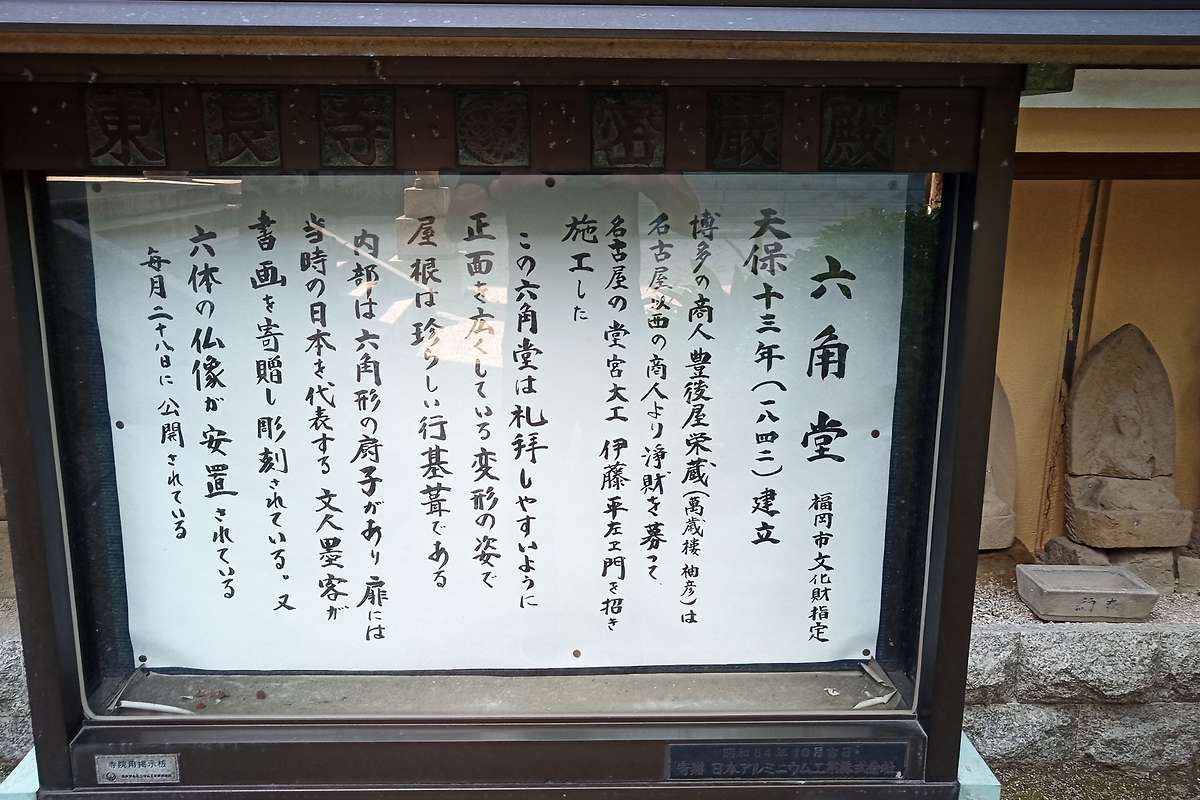 東長寺 密厳殿
六角堂 福岡市文化財指定
天保十三年(一八四二)建立
博多の商人 豊後屋栄蔵(萬歳楼 袖彦)は
名古屋以西の商人より浄財を募って
名古屋の堂宮大工 伊藤平左エ門を招き
施工した
この六角堂は礼拝しやすいように
正面を広くしている変形の姿で
屋根は珍らしい行基葺である
内部は六角形の厨子があり 扉には
当時の日本を代表する 文人墨客が
書画を寄贈し彫刻されている。又
六体の仏像が安置されている
毎月二十八日に公開されている
寺院用掲示板
昭和54年10月吉日
寄贈 日本アルミニウム工業株式会社